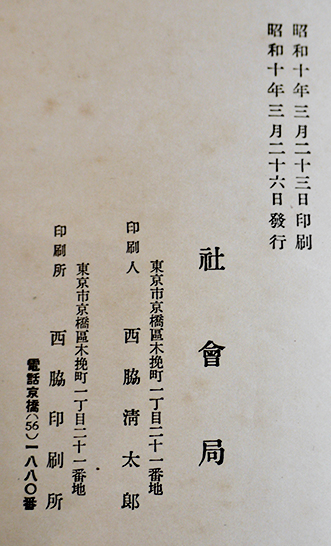 昭和十年三月二十三日印刷
昭和十年三月二十六日發行
社會局
東京市京橋區木挽町一丁目二十一番地
印刷人 西脇淸太郎
東京市京橋區木挽町一丁目二十一番地
印刷所 西脇印刷所
電話京橋(56)一八八〇番